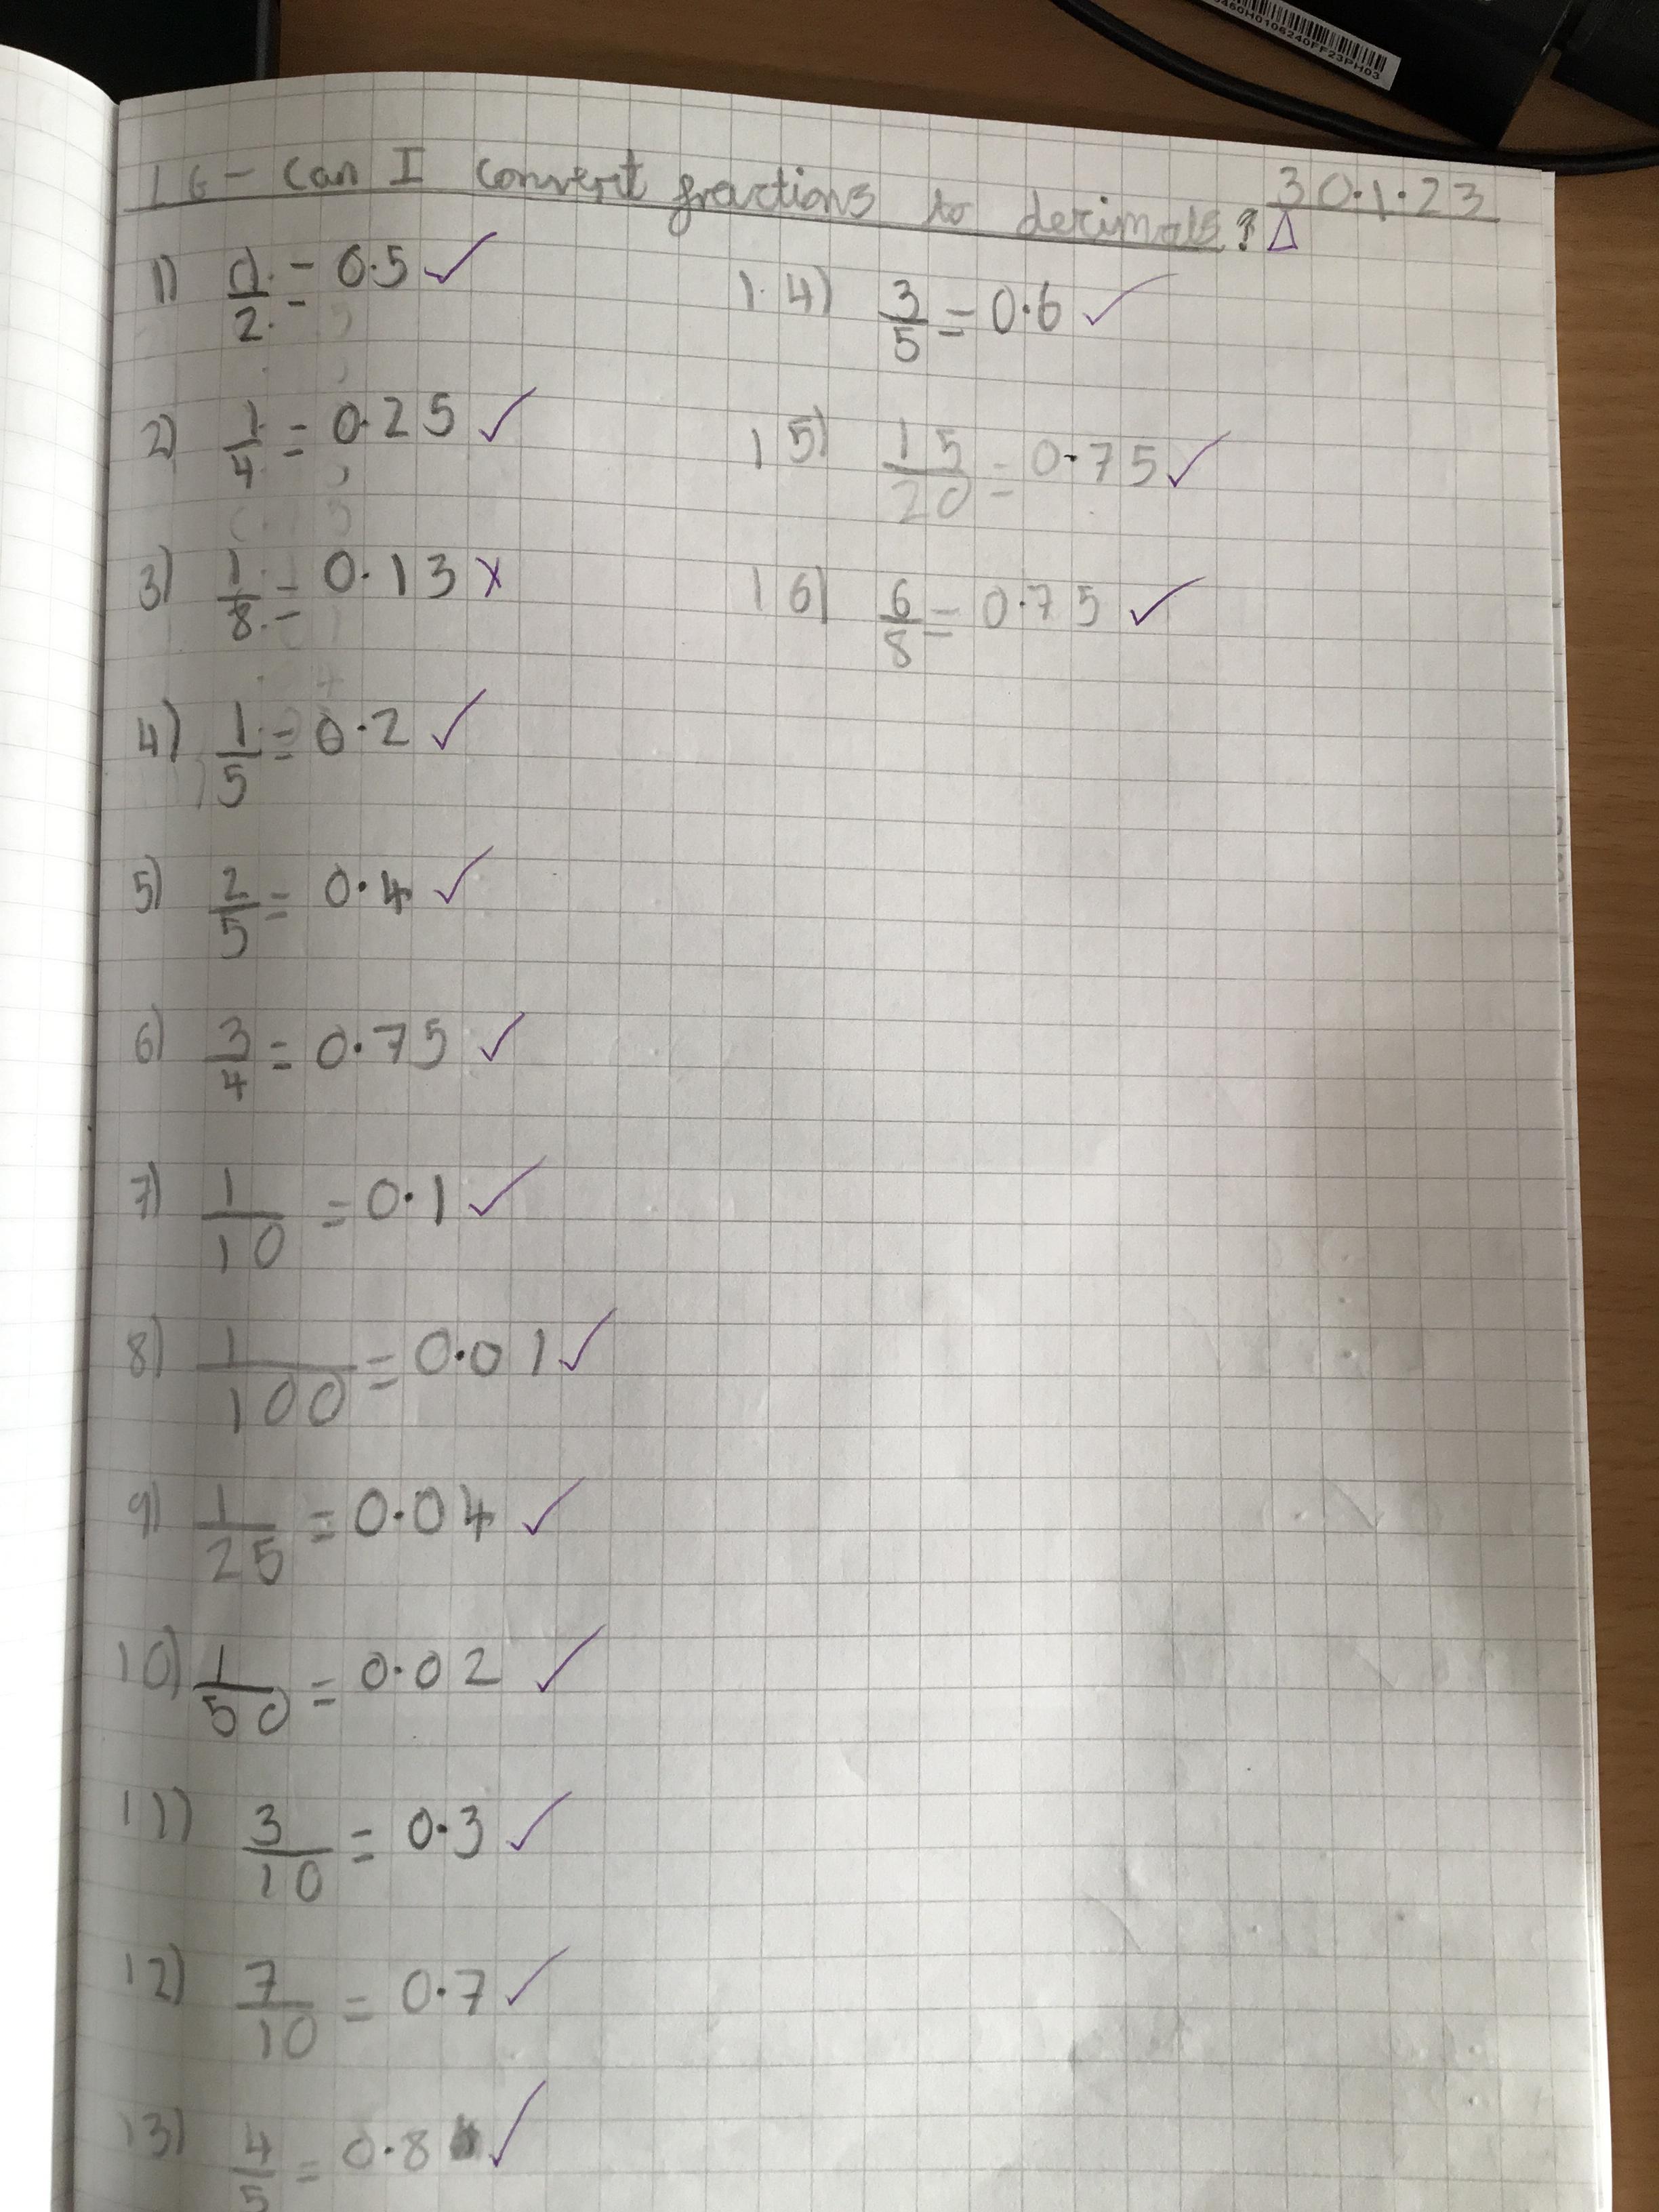 LG - Can I convert fractions to decimals? 30.1.23
1) 1/2 = 0.5 ✓
2) 1/4 = 0.25 ✓
3) 1/8 = 0.13 x
4) 1/5 = 0.2 ✓
5) 2/5 = 0.4 ✓
6) 3/4 = 0.75 ✓
7) 1/10 = 0.1 ✓
8) 1/100 = 0.01 ✓
9) 1/25 = 0.04 ✓
10) 1/50 = 0.02 ✓
11) 3/10 = 0.3 ✓
12) 7/10 = 0.7 ✓
13) 4/5 = 0.8 ✓
14) 3/5 = 0.6 ✓
15) 15/20 = 0.75 ✓
16) 6/8 = 0.75 ✓